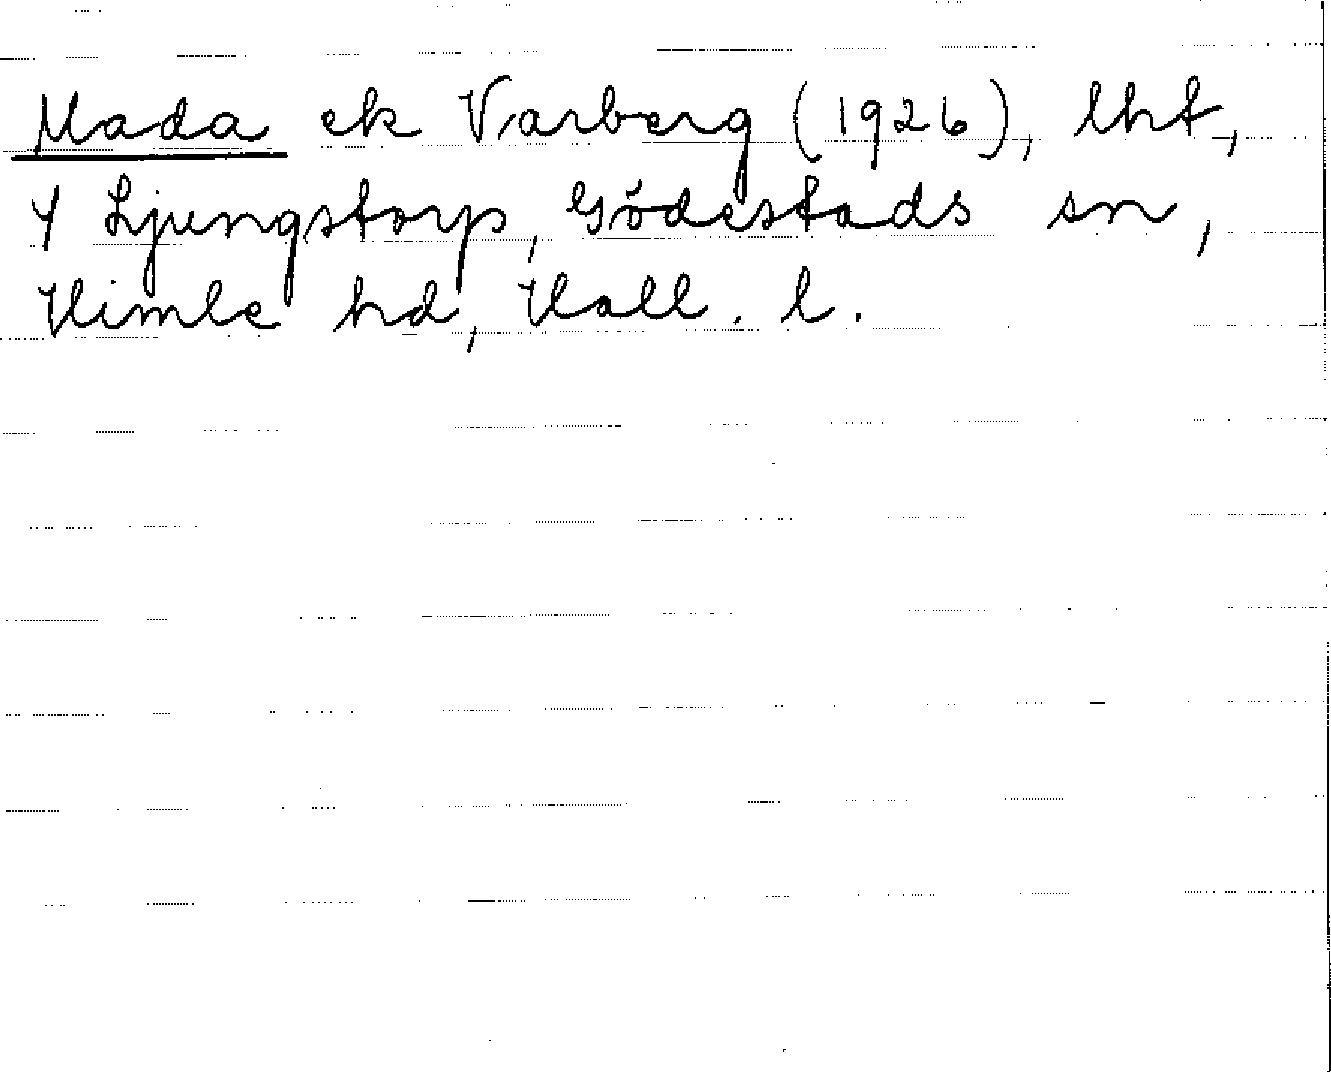 Mada ek Varberg (1926), lht,
Y Ljungstorp, Gödestads sn,
Himle hd, Hall. l.